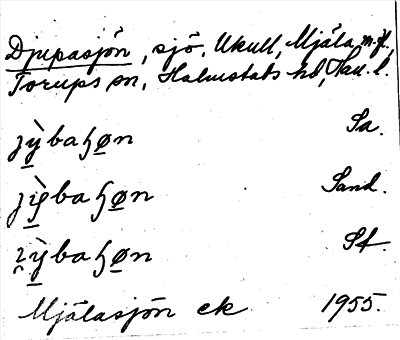 Djupasjön, sjö, Ukull, Mjäla m.fl.,
Torups sn, Halmstads hd, Hall. l.
jỳ̠baɧø̠n Sa.
jì̠ẹbaɧø̠n Sand.
ỳ̠baɧø̠n Sf.
Mjälasjön ek 1955.